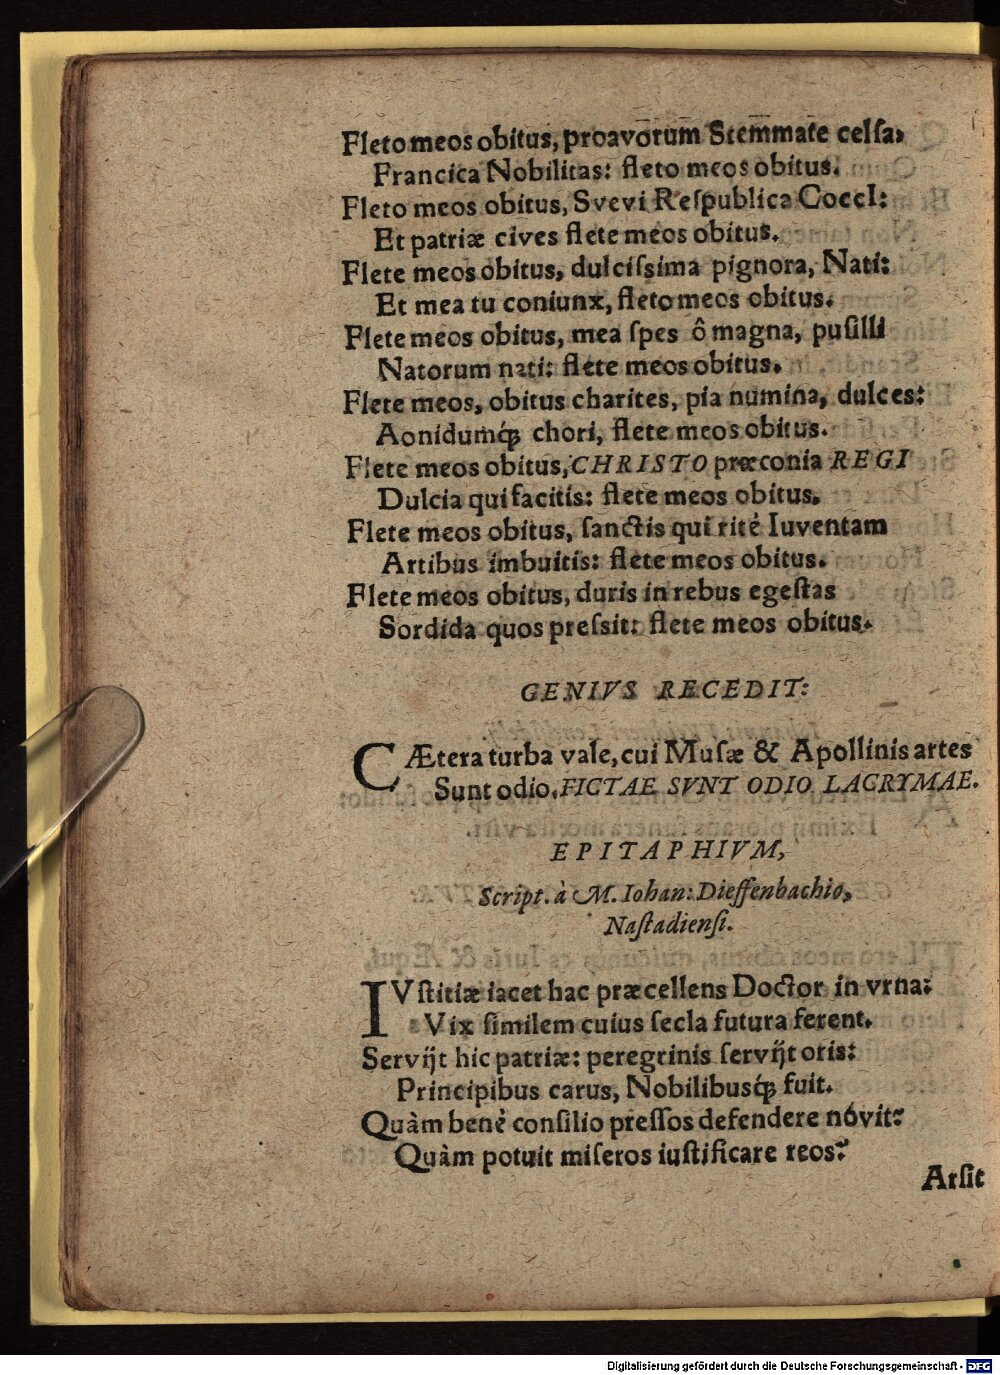 Fleto meos obitus, proavorum Stemmate celſa,
Francica Nobilitas: fleto meos obitus.
Fleto meos obitus, Svevi Reſpublica CoccI:
Et patriæ cives flete meos obitus.
Flete meos obitus, dulciſsima pignora, Nati:
Et mea tu coniunx, fleto meos obitus.
Flete meos obitus, mea ſpes ô magna, puſilli
Natorum nati: flete meos obitus.
Flete meos, obitus charites, pia numina, dulces:
Aonidumq́; chori, flete meos obitus.
Flete meos obitus, CHRISTO præconia REGI
Dulcia qui facitis: flete meos obitus.
Flete meos obitus, ſanctis qui rité Iuventam
Artibus imbuitis: flete meos obitus.
Flete meos obitus, duris in rebus egeſtas
Sordida quos preſsit: flete meos obitus.
GENIVS RECEDIT:
CÆtera turba vale, cui Muſæ & Apollinis artes
Sunt odio, FICTAE SVNT ODIO LACRYMAE.
EPITAPHIVM,
Script. à M. Iohan: Dieffenbachio,
Naſtadienſi.
IVſtitiæ iacet hac præcellens Doctor in vrna:
Vix ſimilem cuius ſecla futura ferent.
Servijt hic patriæ: peregrinis ſervijt oris:
Principibus carus, Nobilibusq́; fuit.
Quàm bené conſilio preſſos defendere nóvit?
Quàm potuit miſeros iuſtificare reos?
Arſit
Digitalisierung gefördert durch die Deutsche Forschungsgemeinschaft - DFG